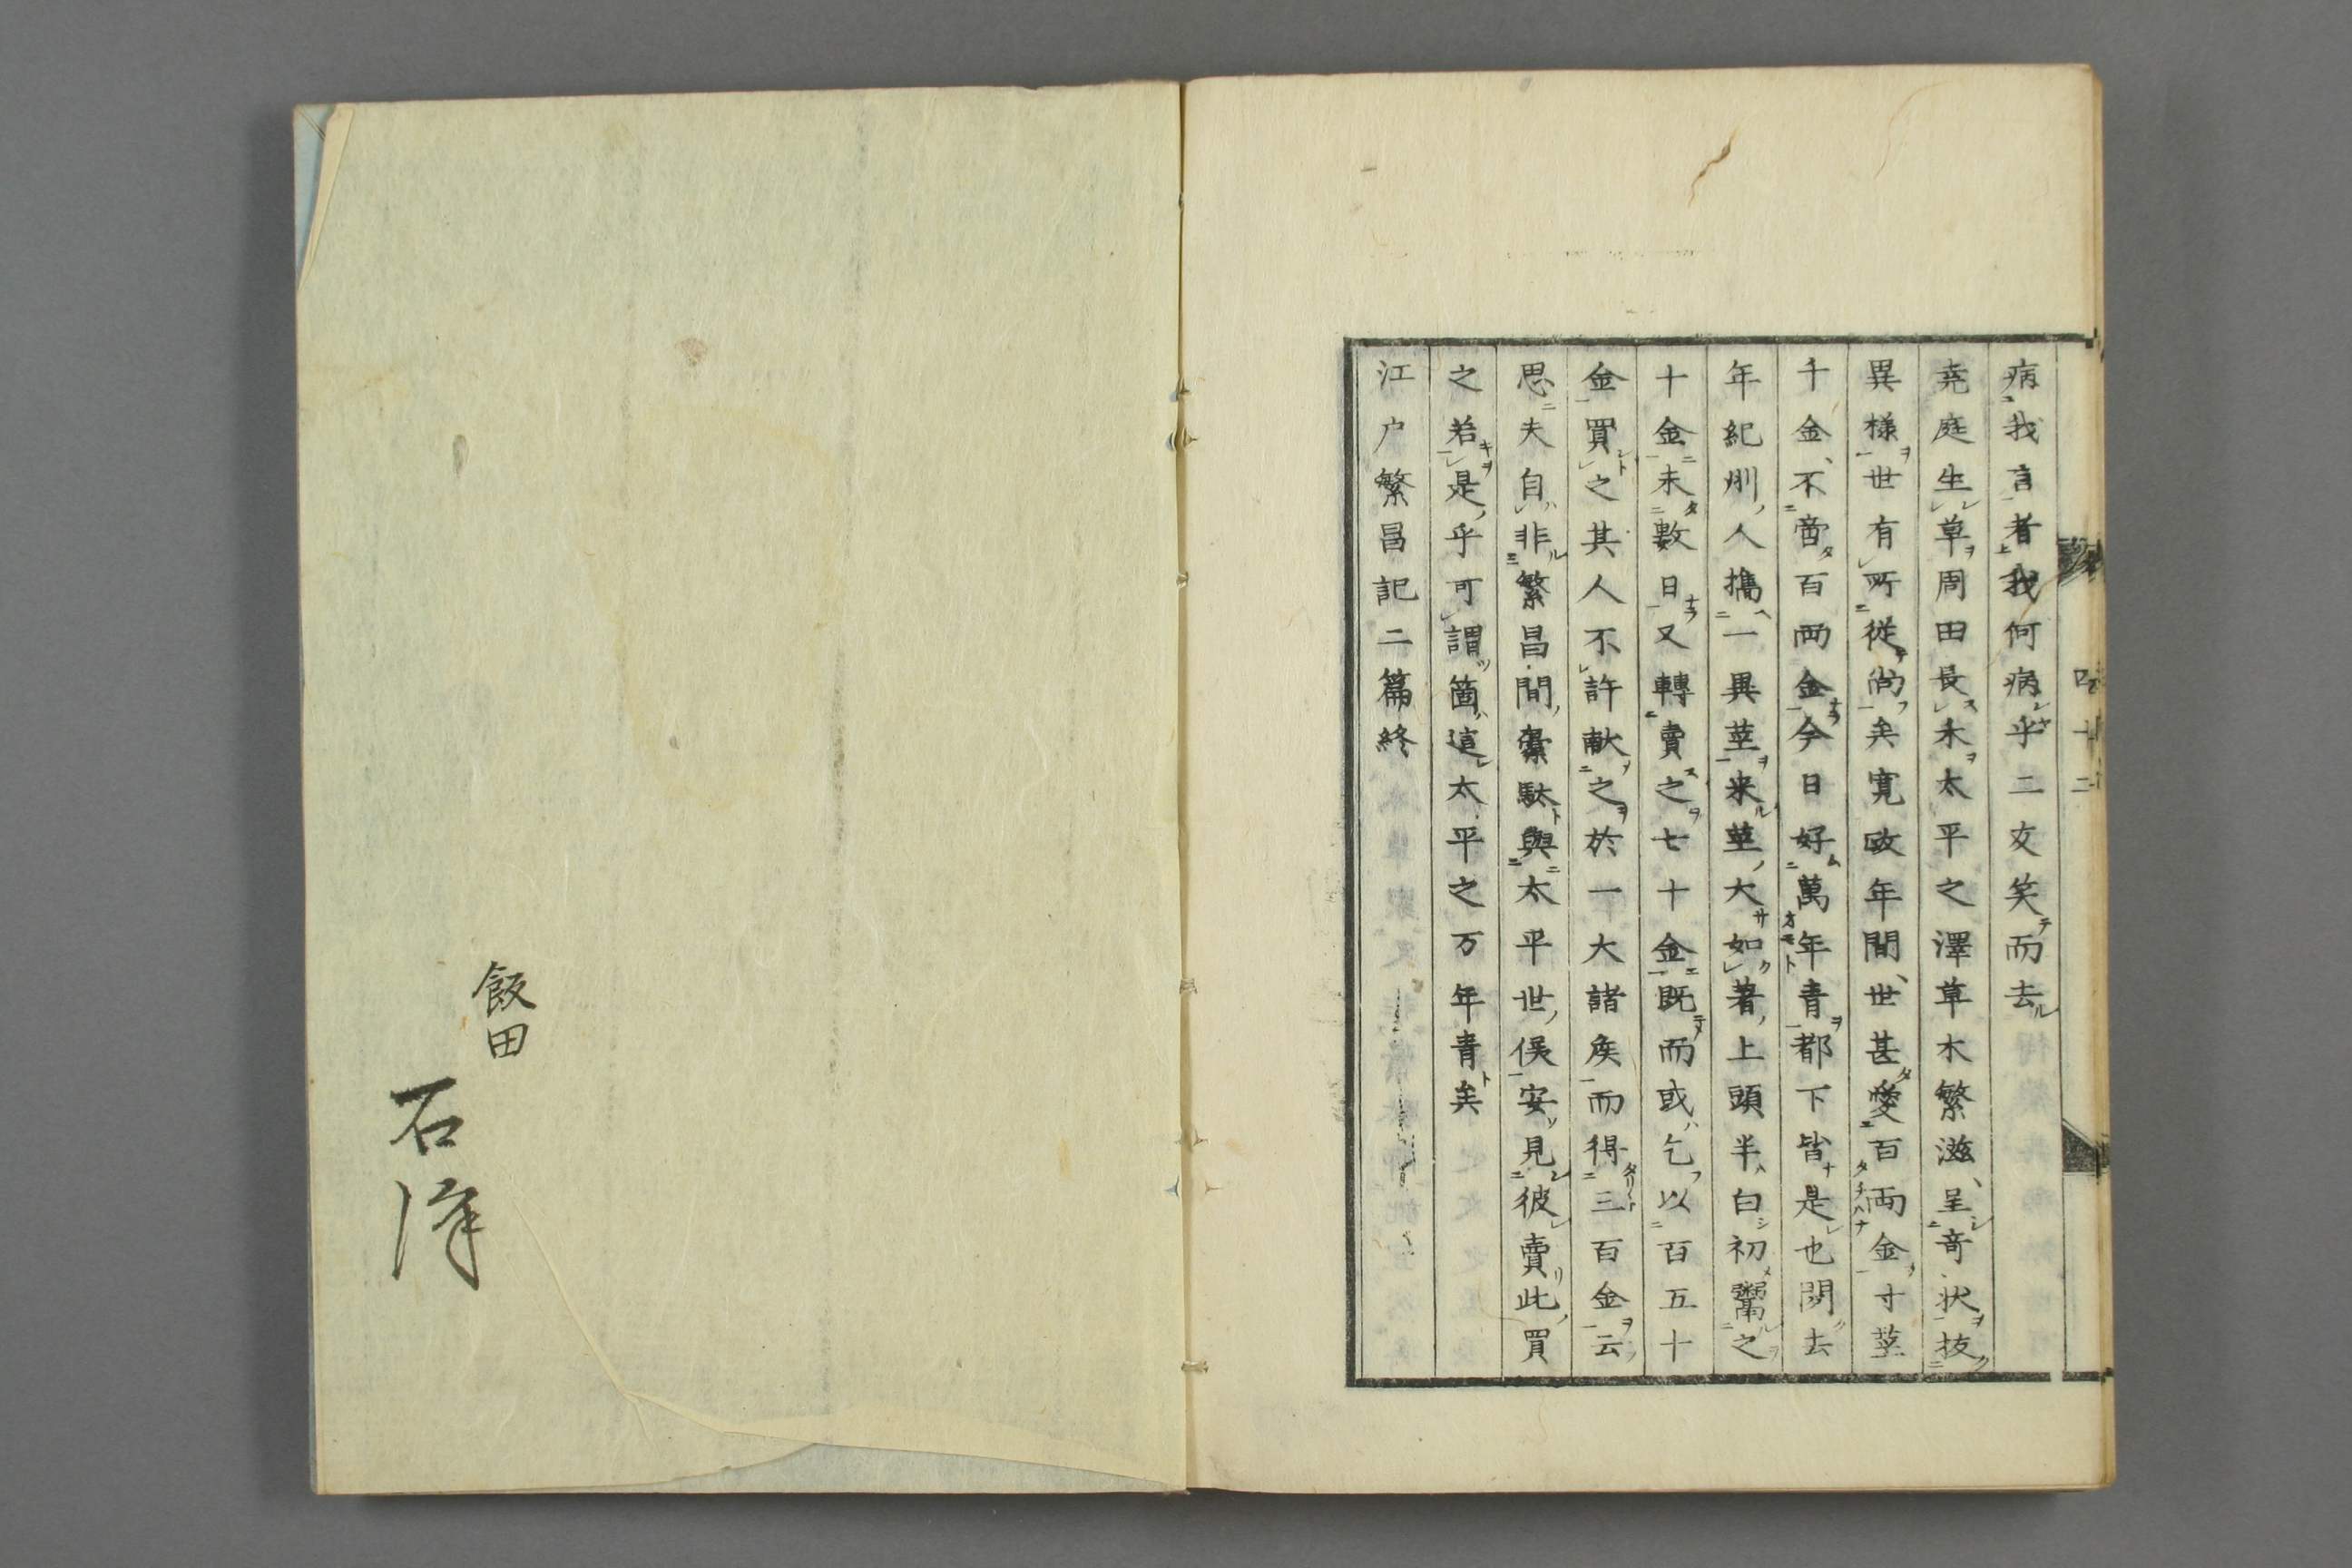 四十二
病我言者我何病乎二友笑而去
堯庭生草周田長禾太平之澤草木繁滋、呈奇状抜
異様世有所從尚矣寛政年間、世甚愛百両金寸莖
千金、不啻百両金今日好萬年青都下皆是也聞去
年紀州人攜一異莖来莖大如著上頭半白初鬻之
十金未數日又轉賣之七十金既而或乞以百五十
金買之其人不許献之於一大諸矦而得三百金云
思夫自非繁昌間槖駄與太平世俣安見彼賣此買
之若是乎可謂箇這太平之万年青矣
江户繁昌記二篇終
飯田
石